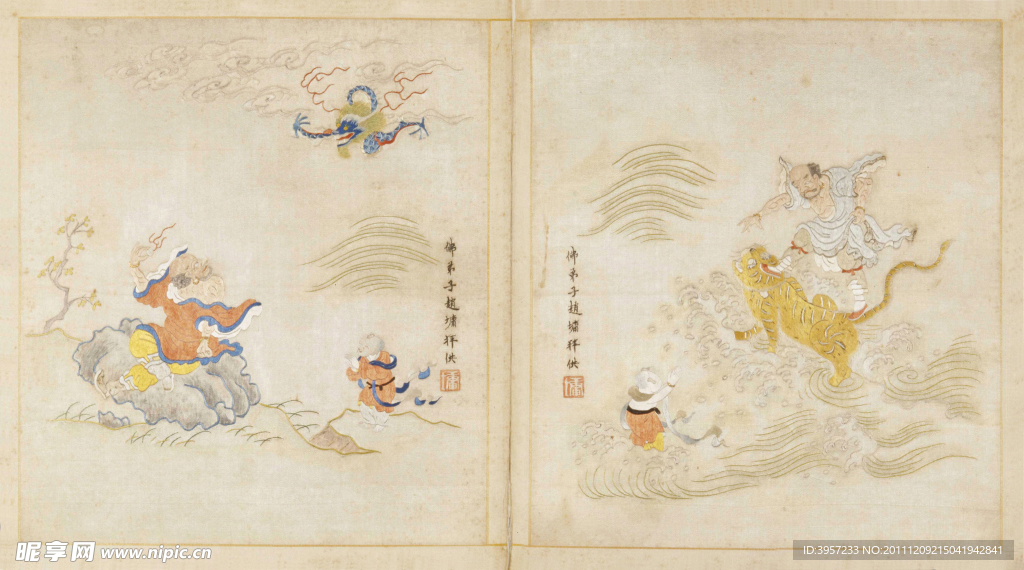 佛弟子趙墉拜供
佛弟子趙墉拜供
昵享网 www.nipic.cn
ID:3957233 NO:20111209215041942841